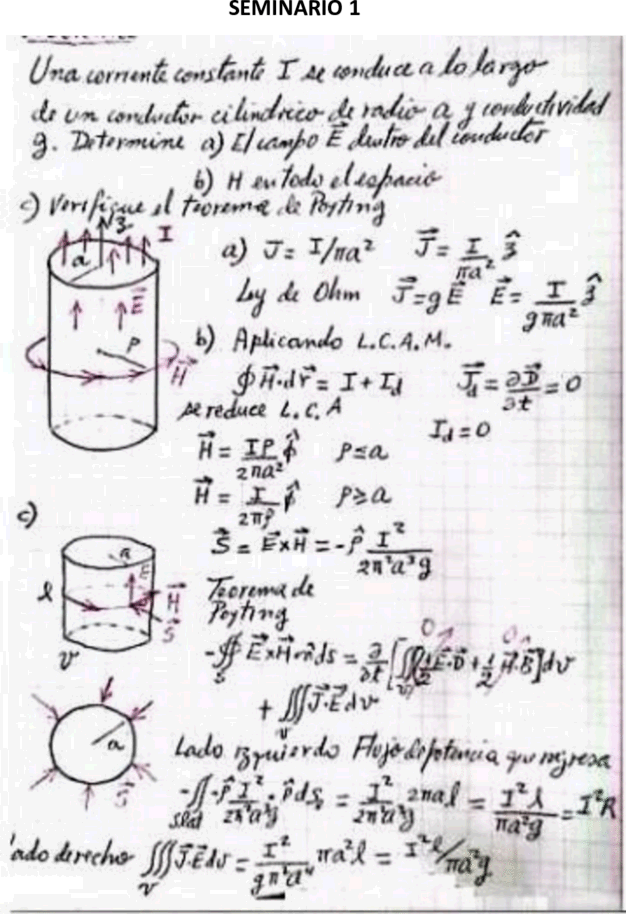 SEMINARIO 1
Una corriente constante I se conduce a lo largo
de un conductor cilíndrico de radio a y conductividad
g. Determine a) El campo E⃗ dentro del conductor
b) H en todo el espacio
c) Verifique el teorema de Poyting
z I
a
E⃗
ρ
H⃗
a) J = I/πa² J⃗ = I/πa² ẑ
Ley de Ohm J⃗ = gE⃗ E⃗ = I/gπa² ẑ
b) Aplicando L.C.A.M.
∮H⃗·dr⃗ = I + I_d J⃗_d = ∂D⃗/∂t = 0
se reduce L.C.A I_d = 0
H⃗ = Iρ/2πa² φ̂ ρ ≤ a
H⃗ = I/2πρ φ̂ ρ ≥ a
c)
S⃗ = E⃗×H⃗ = -ρ̂ I²/2π²a³g
a
E
l
H⃗
S⃗
v
Teorema de
Poyting
-∯_S E⃗×H⃗·n̂ds = ∂/∂t [∭_(v) 1/2 E⃗·D⃗ + 1/2 H⃗·B⃗]dv
0 0
+ ∭_v J⃗·E⃗dv
a
S⃗
Lado izquierdo Flujo de potencia que ingresa
-∬_Slat -ρ̂ I²/2π²a³g · ρ̂ds = I²/2π²a³g 2πal = I²l/πa²g = I²R
lado derecho ∭_V J⃗·E⃗dv = I²/gπ²a⁴ πa²l = I²l/πa²g